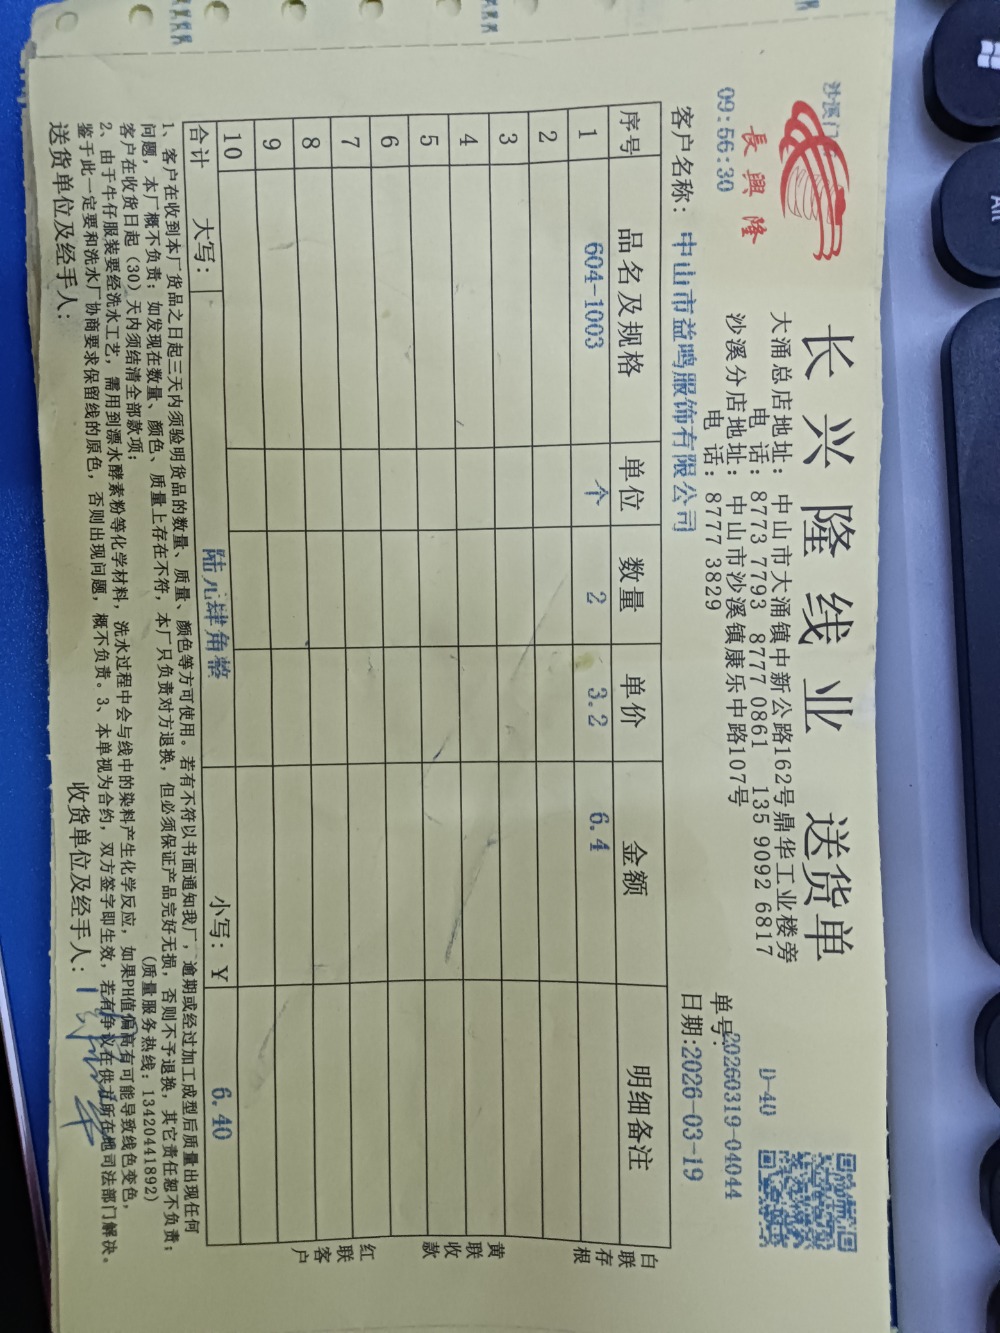 长兴隆线业 送货单
長興隆
大涌总店地址：中山市大涌镇中新公路162号鼎华工业楼旁
电 话：8773 7793 8777 0861 135 9092 6817
沙溪分店地址：中山市沙溪镇康乐中路107号
电 话：8777 3829
沙溪门
09:56:30
D-40
单号：20260319-04044
客户名称：中山市益鸣服饰有限公司
日期:2026-03-19
序号 品名及规格 单位 数量 单价 金额 明细备注
1 604-1003 个 2 3.2 6.4
2
3
4
5
6
7
8
9
10
合计 大写：陆元肆角整 小写：Y 6.40
白联存根
黄联收款
红联客户
1、客户在收到本厂货品之日起三天内须验明货品的数量、质量、颜色等方可使用。若有不符以书面通知我厂，逾期或经过加工成型后质量出现任何
问题，本厂概不负责；如发现在数量、颜色、质量上存在不符，本厂只负责对方退换，但必须保证产品完好无损，否则不予退换，其它责任恕不负责；
客户在收货日起（30）天内须结清全部款项； （质量服务热线：13420441892）
2、由于牛仔服装要经洗水工艺，需用到漂水酵素粉等化学材料，洗水过程中会与线中的染料产生化学反应，如果PH值偏高有可能导致线色变色，
鉴于此一定要和洗水厂协商要求保留线的原色，否则出现问题，概不负责。3、本单视为合约，双方签字即生效，若有争议在供方所在地司法部门解决。
送货单位及经手人： 收货单位及经手人：
Alt